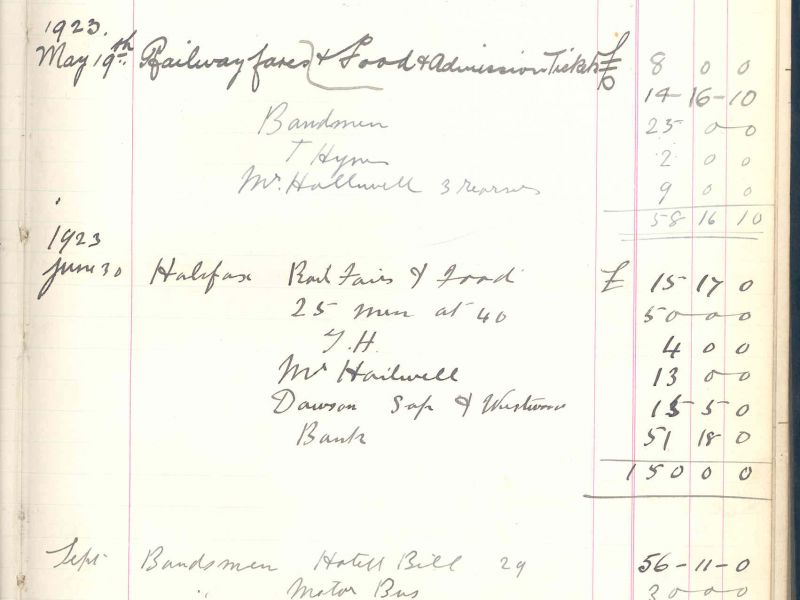 1923.
May 19th Railway fares & Food & Admission Tickets £ 8 0 0
14-16-10
Bandsmen 25 0 0
T Hynes 2 0 0
Mr. Halliwell 3 9 0 0
58 16 10
1923
June 30 Halifax Rail Fairs & Food £ 15 17 0
25 men at 40 50 0 0
T.H. 4 0 0
Mr Hailwell 13 0 0
Dawson Sop & Westwood 15 5 0
Bank 51 18 0
150 0 0
Sept Bandsmen Hotell Bill 29 56-11-0
" Motor Bus 30 0 0